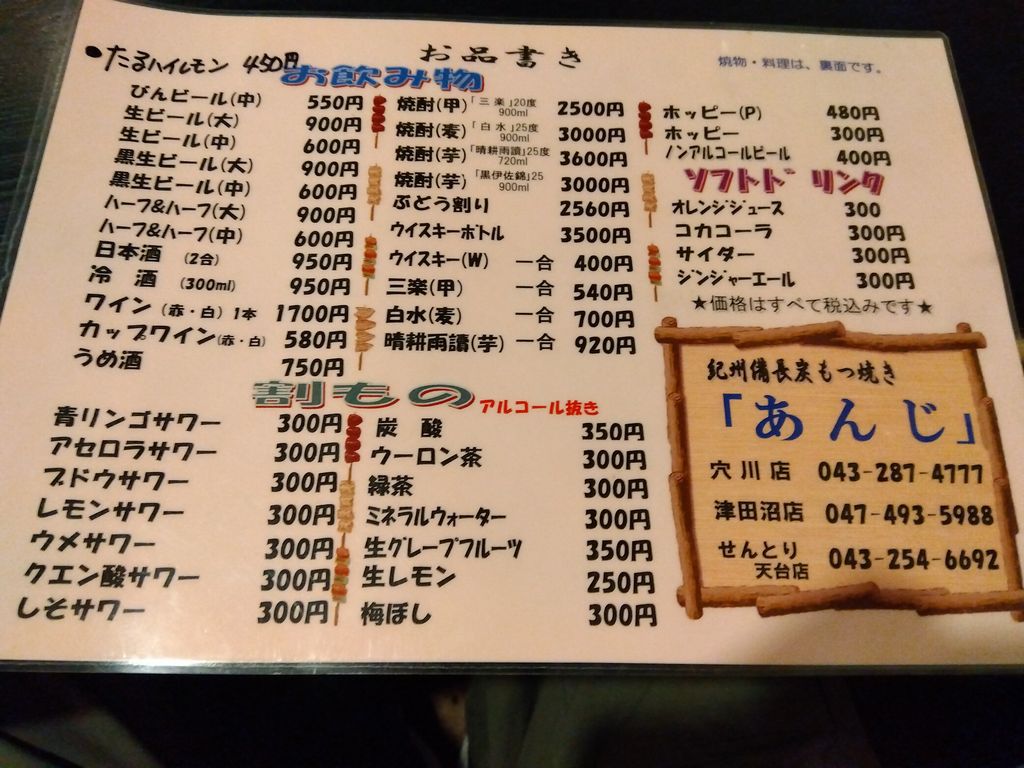 ●たるハイレモン 450円
お品書き
焼物・料理は、裏面です。
お飲み物
びんビール(中) 550円
生ビール(大) 900円
生ビール(中) 600円
黒生ビール(大) 900円
黒生ビール(中) 600円
ハーフ&ハーフ(大) 900円
ハーフ&ハーフ(中) 600円
日本酒 (2合) 950円
冷 酒 (300ml) 950円
ワイン (赤・白) 1本 1700円
カップワイン(赤・白) 580円
うめ酒 750円
焼酎(甲)「三楽」20度 900ml 2500円
焼酎(麦)「白水」25度 900ml 3000円
焼酎(芋)「晴耕雨讀」25度 720ml 3600円
焼酎(芋)「黒伊佐錦」25 900ml 3000円
ぶどう割り 2560円
ウイスキーボトル 3500円
ウイスキー(W) 一合 400円
三楽(甲) 一合 540円
白水(麦) 一合 700円
晴耕雨讀(芋) 一合 920円
ホッピー(P) 480円
ホッピー 300円
ノンアルコールビール 400円
ソフトドリンク
オレンジジュース 300
コカコーラ 300円
サイダー 300円
ジンジャーエール 300円
★価格はすべて税込みです★
割もの アルコール抜き
青リンゴサワー 300円
アセロラサワー 300円
ブドウサワー 300円
レモンサワー 300円
ウメサワー 300円
クエン酸サワー 300円
しそサワー 300円
炭 酸 350円
ウーロン茶 300円
緑茶 300円
ミネラルウォーター 300円
生グレープフルーツ 350円
生レモン 250円
梅ぼし 300円
紀州備長炭もつ焼き
「あんじ」
穴川店 043-287-4777
津田沼店 047-493-5988
せんとり
天台店 043-254-6692